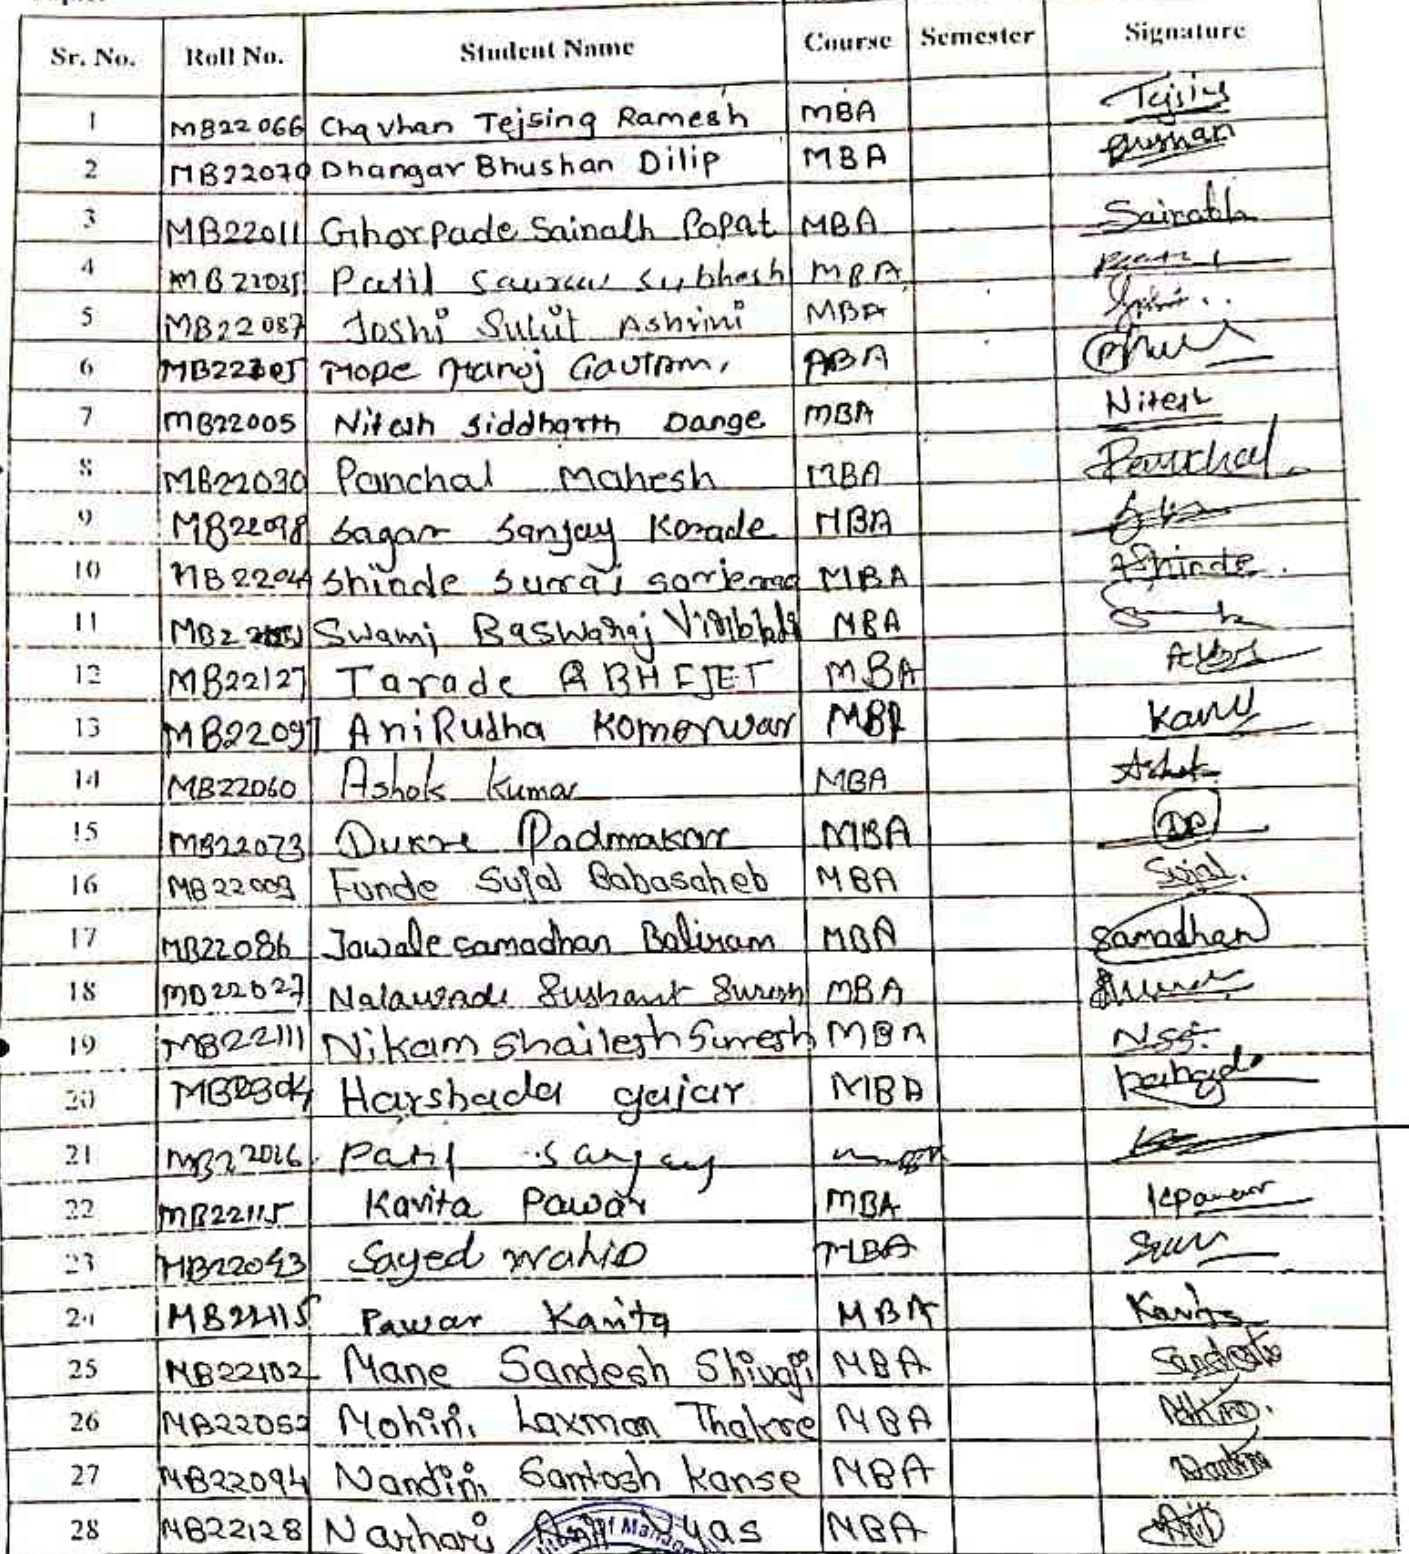 Sr. No. Roll No. Student Name Course Semester Signature
1 MB22066 Chavhan Tejsing Ramesh MBA Tejsing
2 MB22070 Dhangar Bhushan Dilip MBA Bushan
3 MB22011 Ghorpade Sainath Popat MBA Sainath
4 Patil Saurav Subhash MBA
5 MB22087 Joshi Ashvini MBA
6 Mope Manoj Gautam, MBA
7 MB22005 Nitesh Siddharth Dange MBA Nitesh
8 MB22030 Panchal Mahesh MBA Panchal
9 MB22098 Sagar Sanjay Korade MBA
10 Shinde Suraj MBA Shinde
11 Swami Baswaraj MBA
12 MB22127 Tarade ABHIJET MBA
13 MB22097 AniRudha Komerwar MBA
14 MB22060 Ashok Kumar MBA Ashok
15 MB22073 Dukre Padmakar MBA DP
16 MB22009 Funde Sujal Babasaheb MBA Sujal.
17 MB22086 Jawale Samadhan Baliram MBA Samadhan
18 MB22027 Nalawade Sushant Suresh MBA
19 MB22111 Nikam Shailesh Suresh MBA NSS.
20 Harshada gujar MBA
21 MB22026 Patil Sanjay
22 MB22115 Kavita Pawar MBA KPawar
23 MB22043 Sayed Wahid MBA
24 MB22115 Pawar Kavita MBA Kavita
25 MB22102 Mane Sandesh Shivaji MBA Sandesh
26 MB22052 Mohini Laxman Thakre MBA
27 MB22094 Nandini Santosh Kanse MBA Nandini
28 MB22128 Narhari MBA